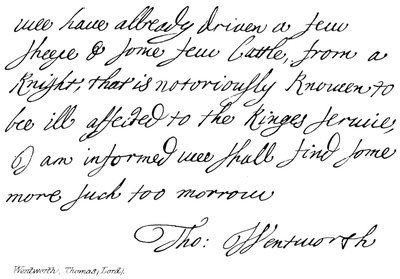 wee haue allready driven a few
sheepe & some few Cattle, from a
Knight, that is notoriously Knowen to
bee ill affected to the Kinges seruice,
I am informed wee shall find some
more such too morrow
Tho: Wentworth
Wentworth, Thomas, Lord).